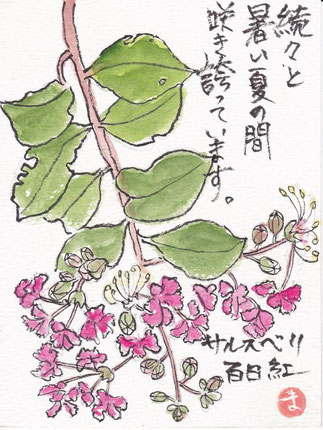 続々と
暑い夏の間
咲き誇っています。
サルスベリ
百日紅
ま